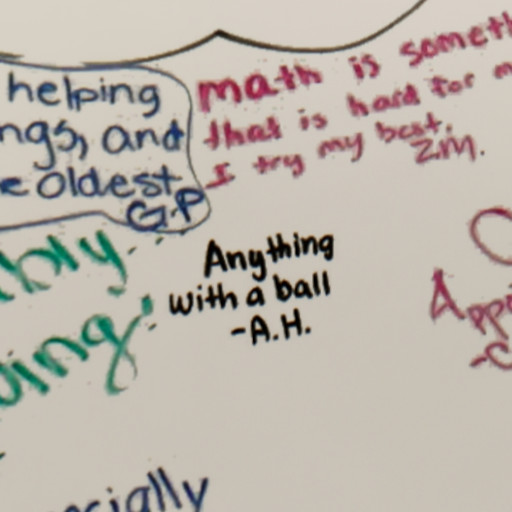 helping
ngs, and
e oldest
G.P
math is someth
that is hard for m
I try my best.
Z.M.
bly.
ing!
Anything
with a ball
-A.H.
App
-C
cially